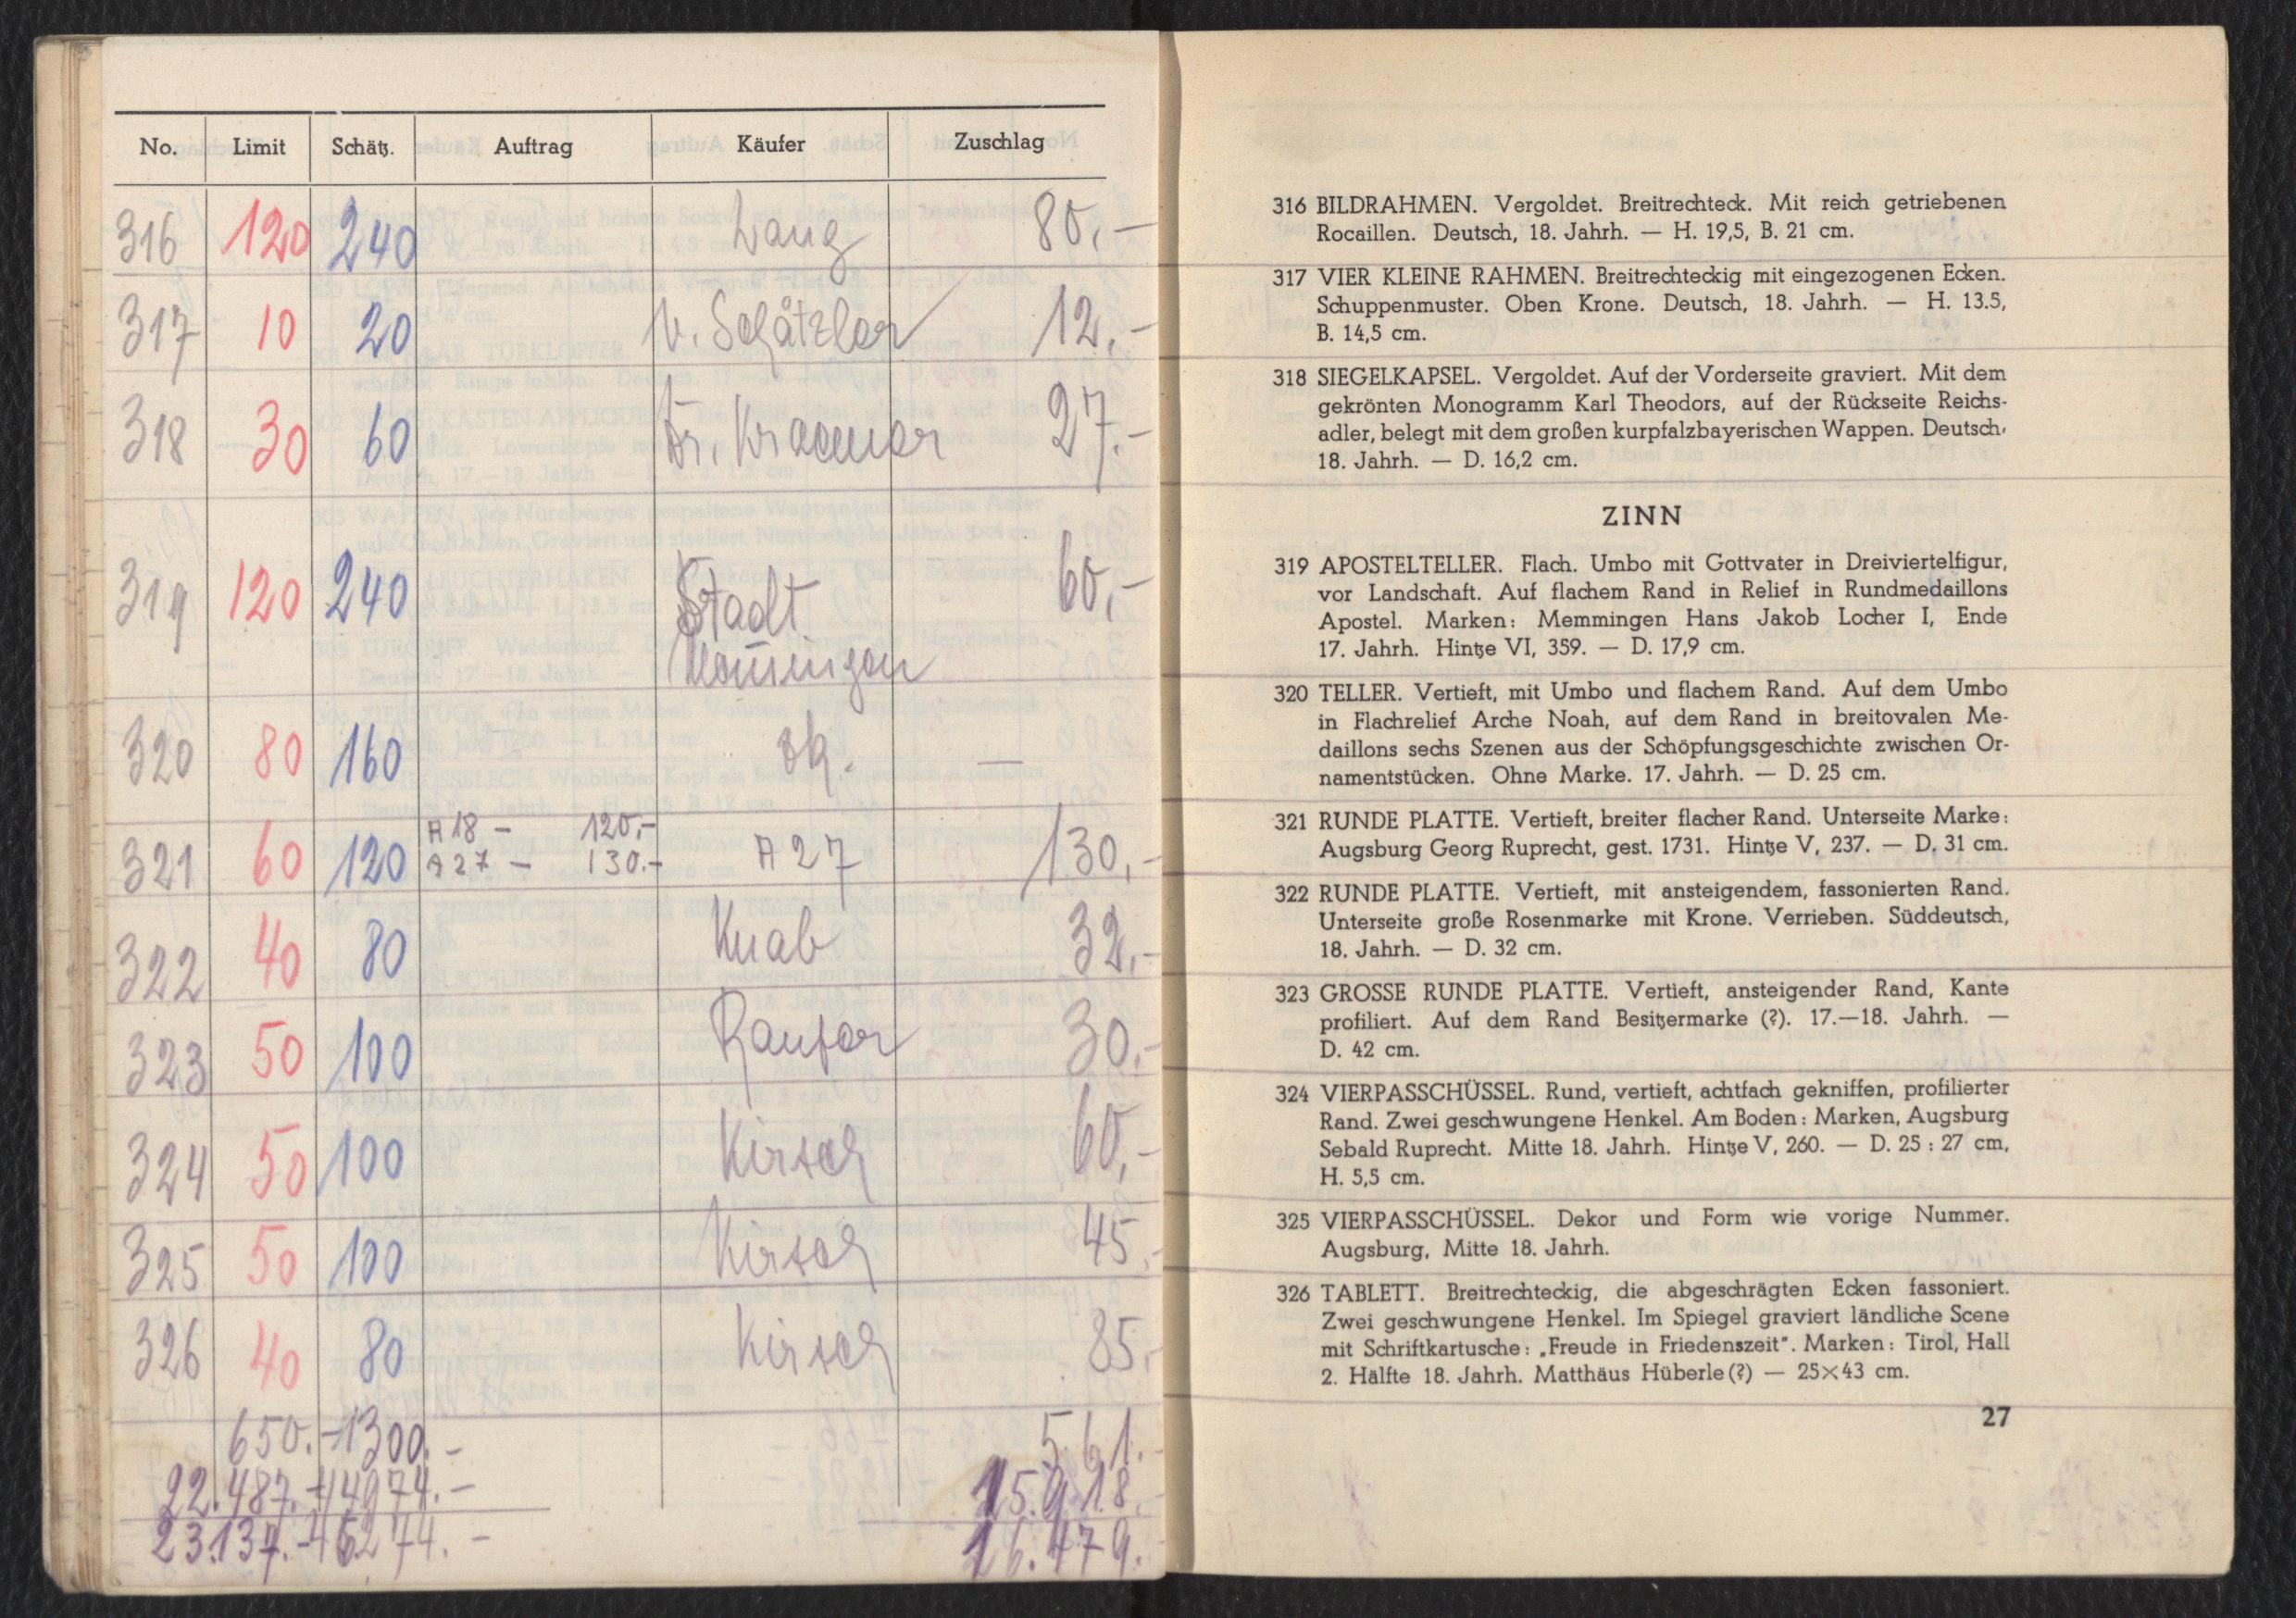 No. Limit Schätz. Auftrag Käufer Zuschlag
316 120 240 Lang 80.-
317 10 20 v. Schätzler 12.-
318 30 60 Dr. Kraemer 27.-
319 120 240 Stadt 60.-
Memmingen
320 80 160 –
A 18 – 120.-
321 60 120 A 27 – 130.- A 27 130.-
322 40 80 Knab 32.-
323 50 100 30.-
324 50 100 Kirsch 60.-
325 50 100 Kirsch 45.-
326 40 80 Kirsch 85.-
650.- 1300.- 561.-
22.487.- 44974.- 15.918.-
23.137.- 46274.- 16.479.-
316 BILDRAHMEN. Vergoldet. Breitrechteck. Mit reich getriebenen
Rocaillen. Deutsch, 18. Jahrh. — H. 19,5, B. 21 cm.
317 VIER KLEINE RAHMEN. Breitrechteckig mit eingezogenen Ecken.
Schuppenmuster. Oben Krone. Deutsch, 18. Jahrh. — H. 13.5,
B. 14,5 cm.
318 SIEGELKAPSEL. Vergoldet. Auf der Vorderseite graviert. Mit dem
gekrönten Monogramm Karl Theodors, auf der Rückseite Reichs-
adler, belegt mit dem großen kurpfalzbayerischen Wappen. Deutsch,
18. Jahrh. — D. 16,2 cm.
ZINN
319 APOSTELTELLER. Flach. Umbo mit Gottvater in Dreiviertelfigur,
vor Landschaft. Auf flachem Rand in Relief in Rundmedaillons
Apostel. Marken: Memmingen Hans Jakob Locher I, Ende
17. Jahrh. Hintze VI, 359. — D. 17,9 cm.
320 TELLER. Vertieft, mit Umbo und flachem Rand. Auf dem Umbo
in Flachrelief Arche Noah, auf dem Rand in breitovalen Me-
daillons sechs Szenen aus der Schöpfungsgeschichte zwischen Or-
namentstücken. Ohne Marke. 17. Jahrh. — D. 25 cm.
321 RUNDE PLATTE. Vertieft, breiter flacher Rand. Unterseite Marke:
Augsburg Georg Ruprecht, gest. 1731. Hintze V, 237. — D. 31 cm.
322 RUNDE PLATTE. Vertieft, mit ansteigendem, fassonierten Rand.
Unterseite große Rosenmarke mit Krone. Verrieben. Süddeutsch,
18. Jahrh. — D. 32 cm.
323 GROSSE RUNDE PLATTE. Vertieft, ansteigender Rand, Kante
profiliert. Auf dem Rand Besitzermarke (?). 17.—18. Jahrh. —
D. 42 cm.
324 VIERPASSCHÜSSEL. Rund, vertieft, achtfach gekniffen, profilierter
Rand. Zwei geschwungene Henkel. Am Boden: Marken, Augsburg
Sebald Ruprecht. Mitte 18. Jahrh. Hintze V, 260. — D. 25 : 27 cm,
H. 5,5 cm.
325 VIERPASSCHÜSSEL. Dekor und Form wie vorige Nummer.
Augsburg, Mitte 18. Jahrh.
326 TABLETT. Breitrechteckig, die abgeschrägten Ecken fassoniert.
Zwei geschwungene Henkel. Im Spiegel graviert ländliche Scene
mit Schriftkartusche: „Freude in Friedenszeit". Marken: Tirol, Hall
2. Hälfte 18. Jahrh. Matthäus Hüberle (?) — 25×43 cm.
27